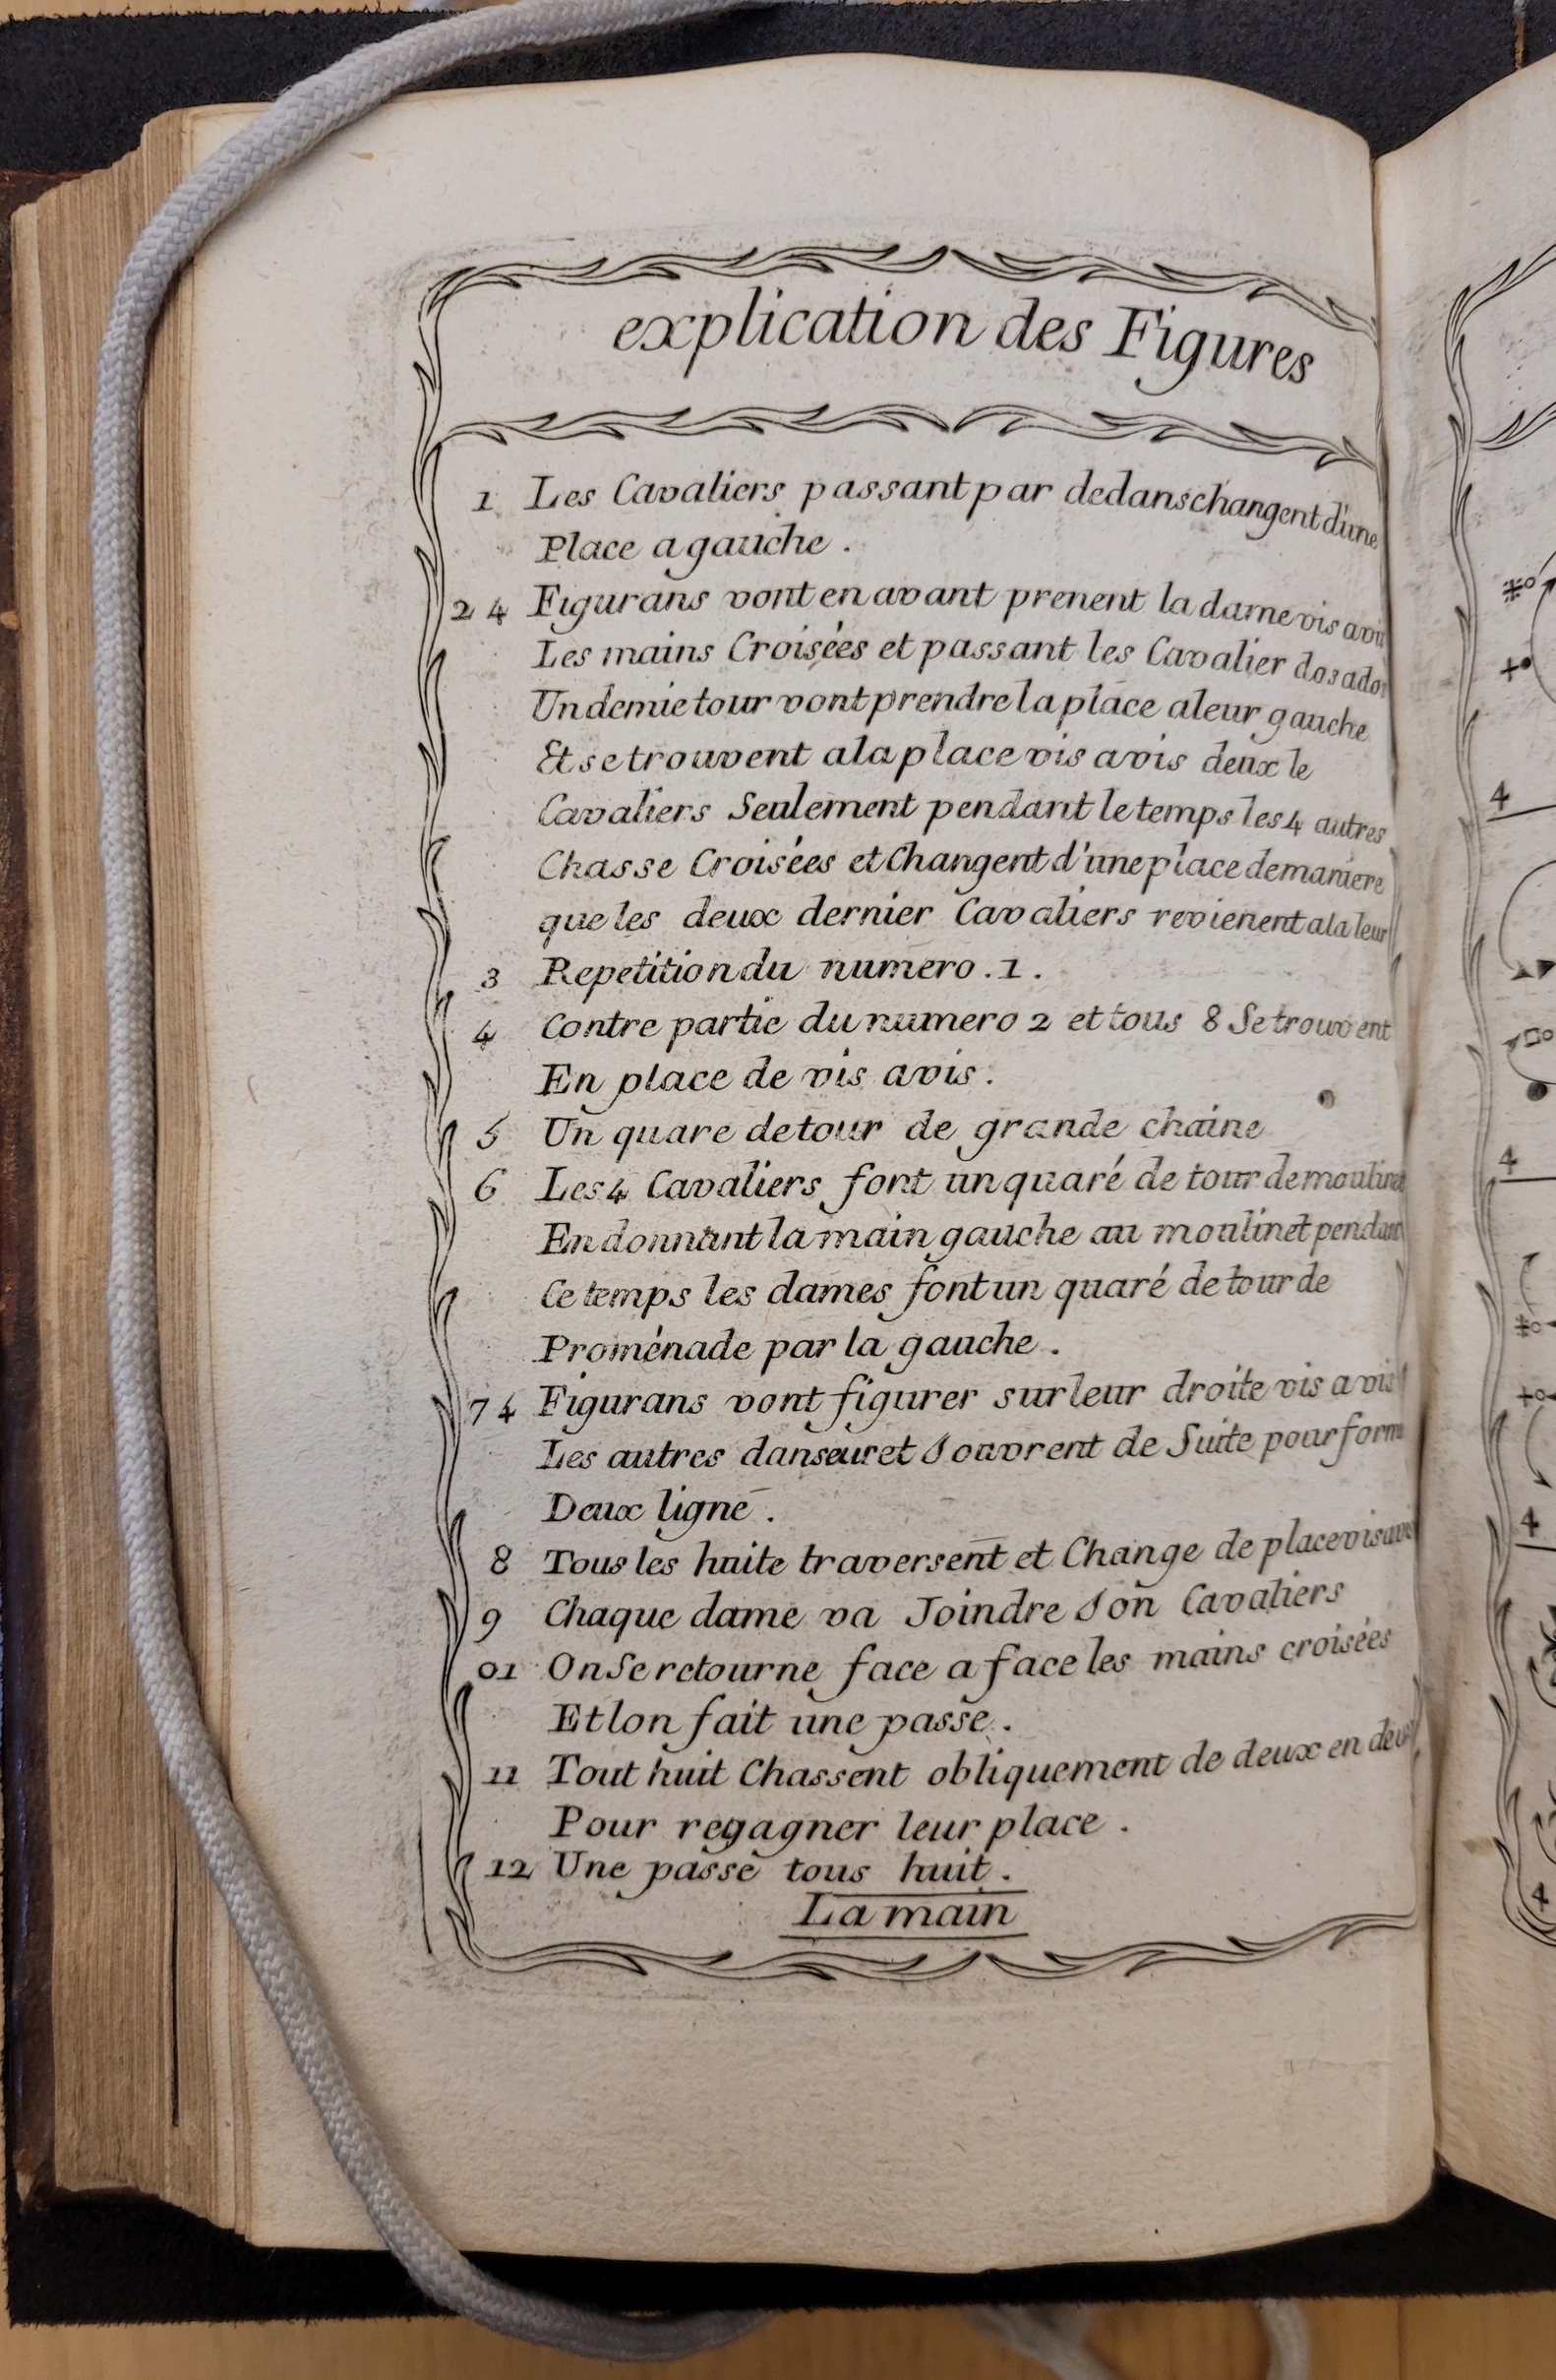 explication des Figures
1 Les Cavaliers passant par dedans changent d'une
Place a gauche .
2 4 Figurans vont en avant prenent la dame vis avis
Les mains Croisées et passant les Cavalier dos ados
Un demie tour vont prendre la place a leur gauche
Et se trouvent a la place vis avis deux le
Cavaliers Seulement pendant le temps les 4 autres
Chasse Croisées et Changent d'une place de maniere
que les deux dernier Cavaliers revienent a la leur
3 Repetition du numero . 1 .
4 Contre partie du numero 2 et tous 8 Se trouvent
En place de vis avis .
5 Un quare de tour de grande chaine
6 Les 4 Cavaliers font un quaré de tour de moulinet
En donnant la main gauche au moulinet pendant
Ce temps les dames font un quaré de tour de
Proménade par la gauche .
7 4 Figurans vont figurer sur leur droite vis avis
Les autres danseur et Souvrent de Suite pour form
Deux ligne .
8 Tous les huite traversent et Change de place vis avis
9 Chaque dame va Joindre Son Cavaliers
01 On Se retourne face a face les mains croisées
Et lon fait une passe .
11 Tout huit Chassent obliquement de deux en deux
Pour regagner leur place .
12 Une passe tous huit .
La main
4
4
4
4